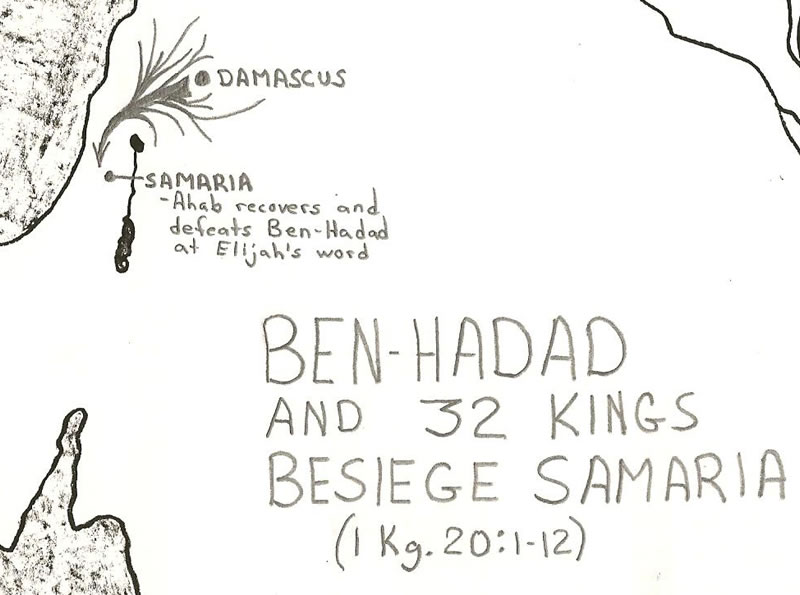 DAMASCUS
SAMARIA
-Ahab recovers and
defeats Ben-Hadad
at Elijah's word
BEN-HADAD
AND 32 KINGS
BESIEGE SAMARIA
(1 Kg. 20:1-12)